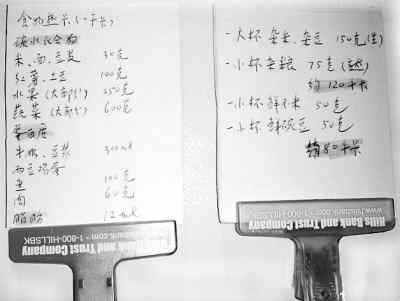 食物热卡(一千卡)
碳水化合物
米、面、豆类 30克
红薯、土豆 100克
水果(大部分) 250克
蔬菜(大部分) 600克
蛋白质
牛奶、豆浆 300ml
鱼 100克
肉 60克
脂肪 12ml
Hills Bank and Trust Company
www.hillsbank.com • 1-800-HILLSBK
-大杯 杂米、杂豆 150克(生)
-小杯 杂粮 75克
约120千卡
-小杯 鲜玉米 50克
-小杯 鲜豌豆 50克
80千卡
Hills Bank and Trust Company
www.hillsbank.com • 1-800-HILLSBK